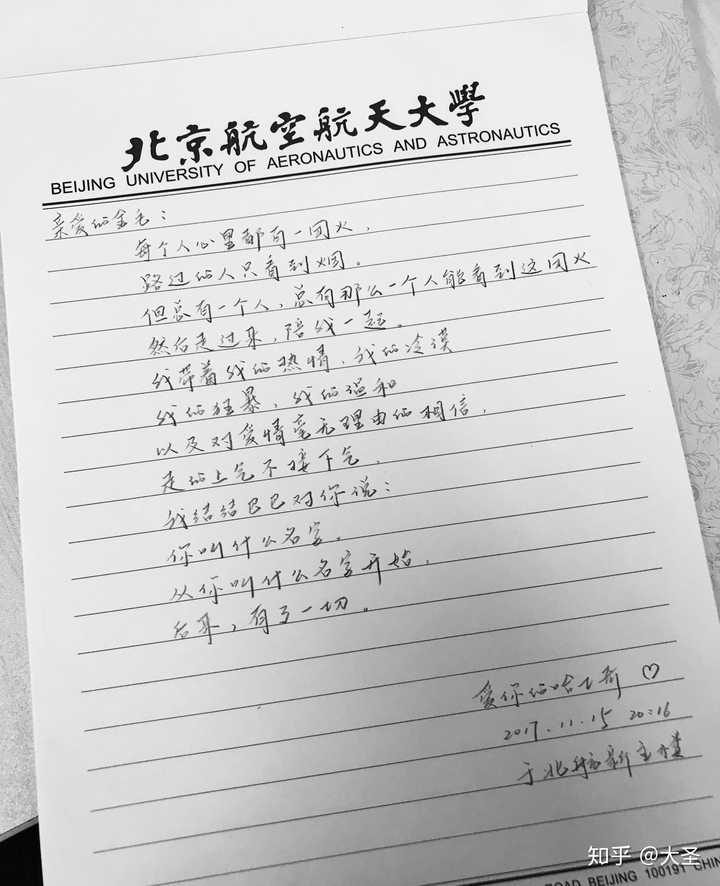 北京航空航天大學
BEIJING UNIVERSITY OF AERONAUTICS AND ASTRONAUTICS
亲爱的金毛：
每个人心里都有一团火，
路过的人只看到烟。
但总有一个人，总有那么一个人能看到这团火
然后走过来，陪我一起。
我带着我的热情，我的冷漠
我的狂暴，我的温和
以及对爱情毫无理由的相信，
走的上气不接下气，
我结结巴巴对你说：
你叫什么名字。
从你叫什么名字开始，
后来，有了一切。
爱你的哈士奇 ♡
2017.11.15 20:16
于北航新主楼
知乎 @大圣
ROAD BEIJING 100191 CHIN